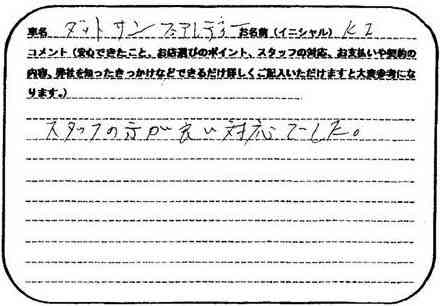 車名 ダットサン フェアレディー お名前（イニシャル） K I
コメント（安心できたこと、お店選びのポイント、スタッフの対応、お支払いや契約の
内容、弊社を知ったきっかけなどできるだけ詳しくご記入いただけますと大変参考にな
ります。）
スタッフの方が良い対応でした。